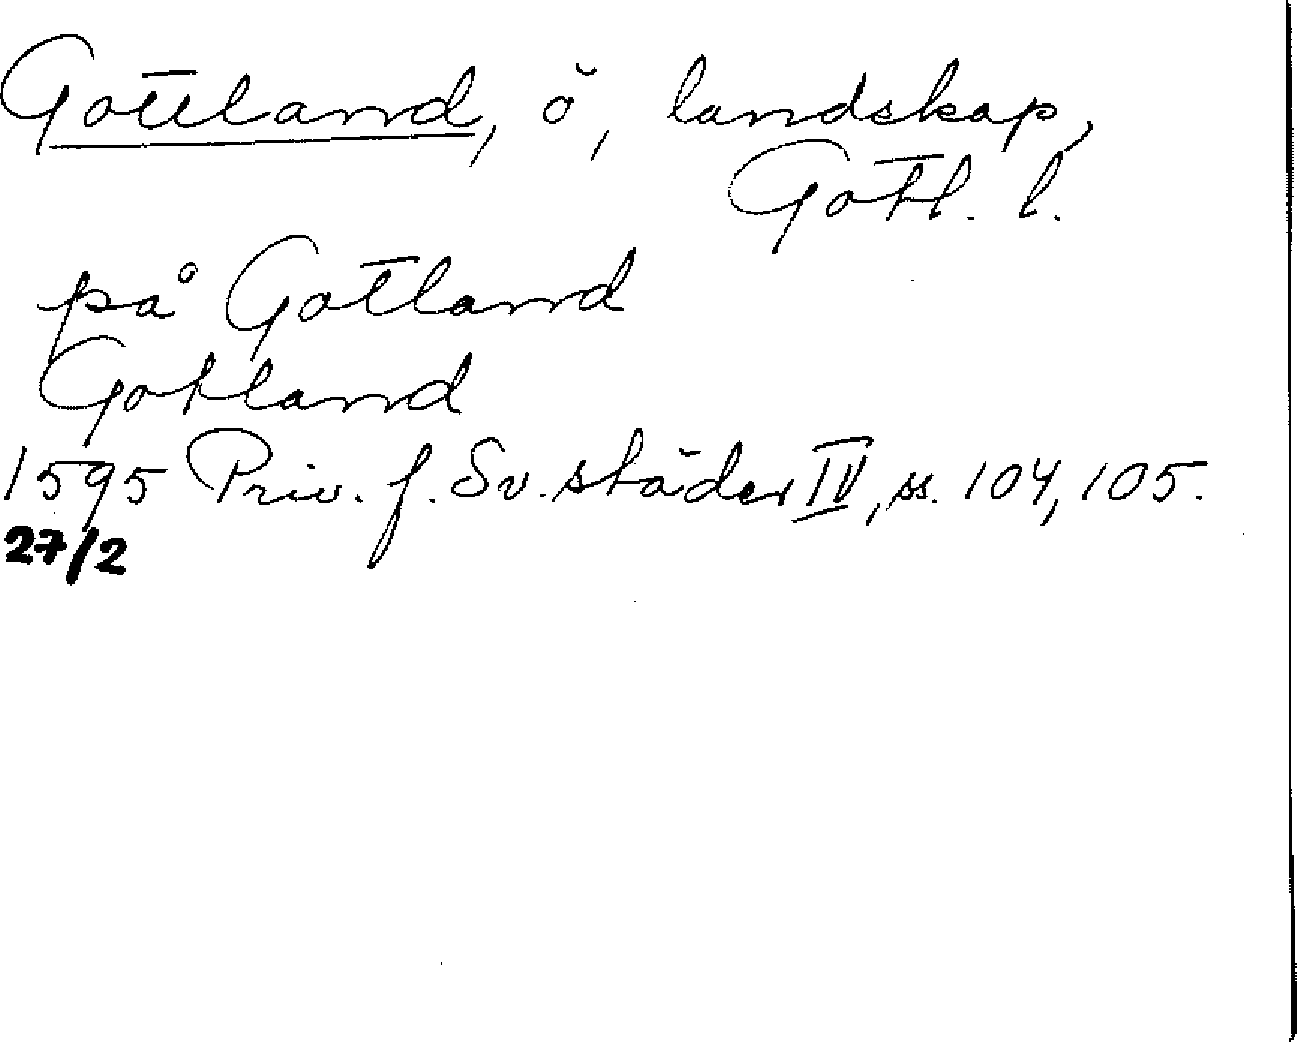 Gottland, ö, landskap,
Gotl. l.
på Gotland
Gotland
1595 Priv. f. Sv. städer IV, ss. 104, 105.
27/2